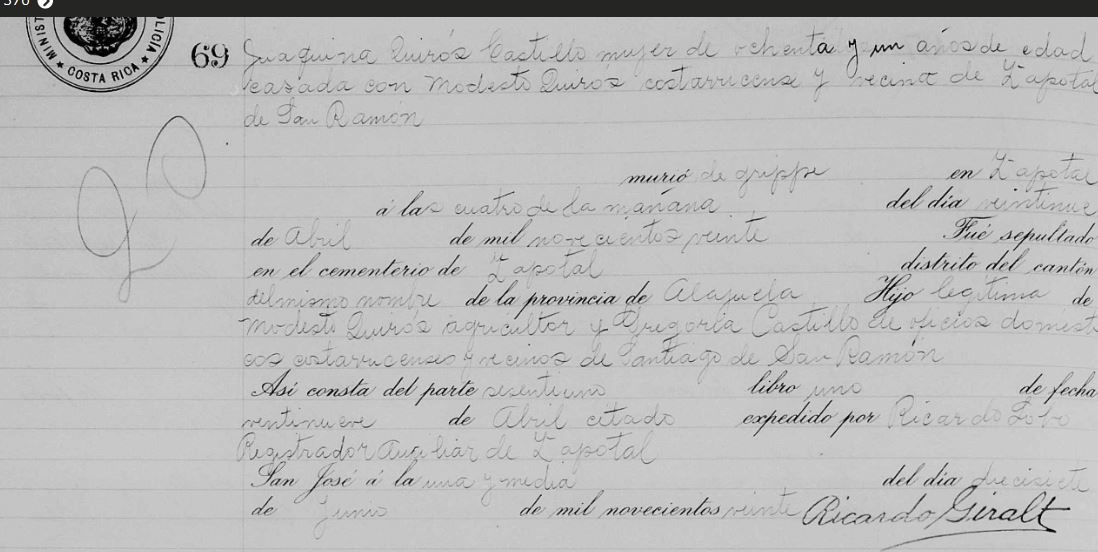 376
MINIS
COSTA RICA
OLICIA
69 Juaquina Quirós Castillo mujer de ochenta y un años de edad
casada con Modesto Quirós costarricense y vecina de Zapotal
de San Ramón
murió de grippe en Zapotal
á las cuatro de la mañana del día veintinue
de Abril de mil novecientos veinte Fué sepultado
en el cementerio de Zapotal distrito del cantón
del mismo nombre de la provincia de Alajuela Hijo legitima de
Modesto Quirós agricultor y Gregoria Castillo de oficios domésti
cos costarricenses y vecinos de Santiago de San Ramón
Así consta del parte sesentiuno libro uno de fecha
ventinueve de Abril citado expedido por Ricardo Lobo
Registrador Auxiliar de Zapotal
San José á la una y media del día diecisiete
de Junio de mil novecientos veinte Ricardo Giralt